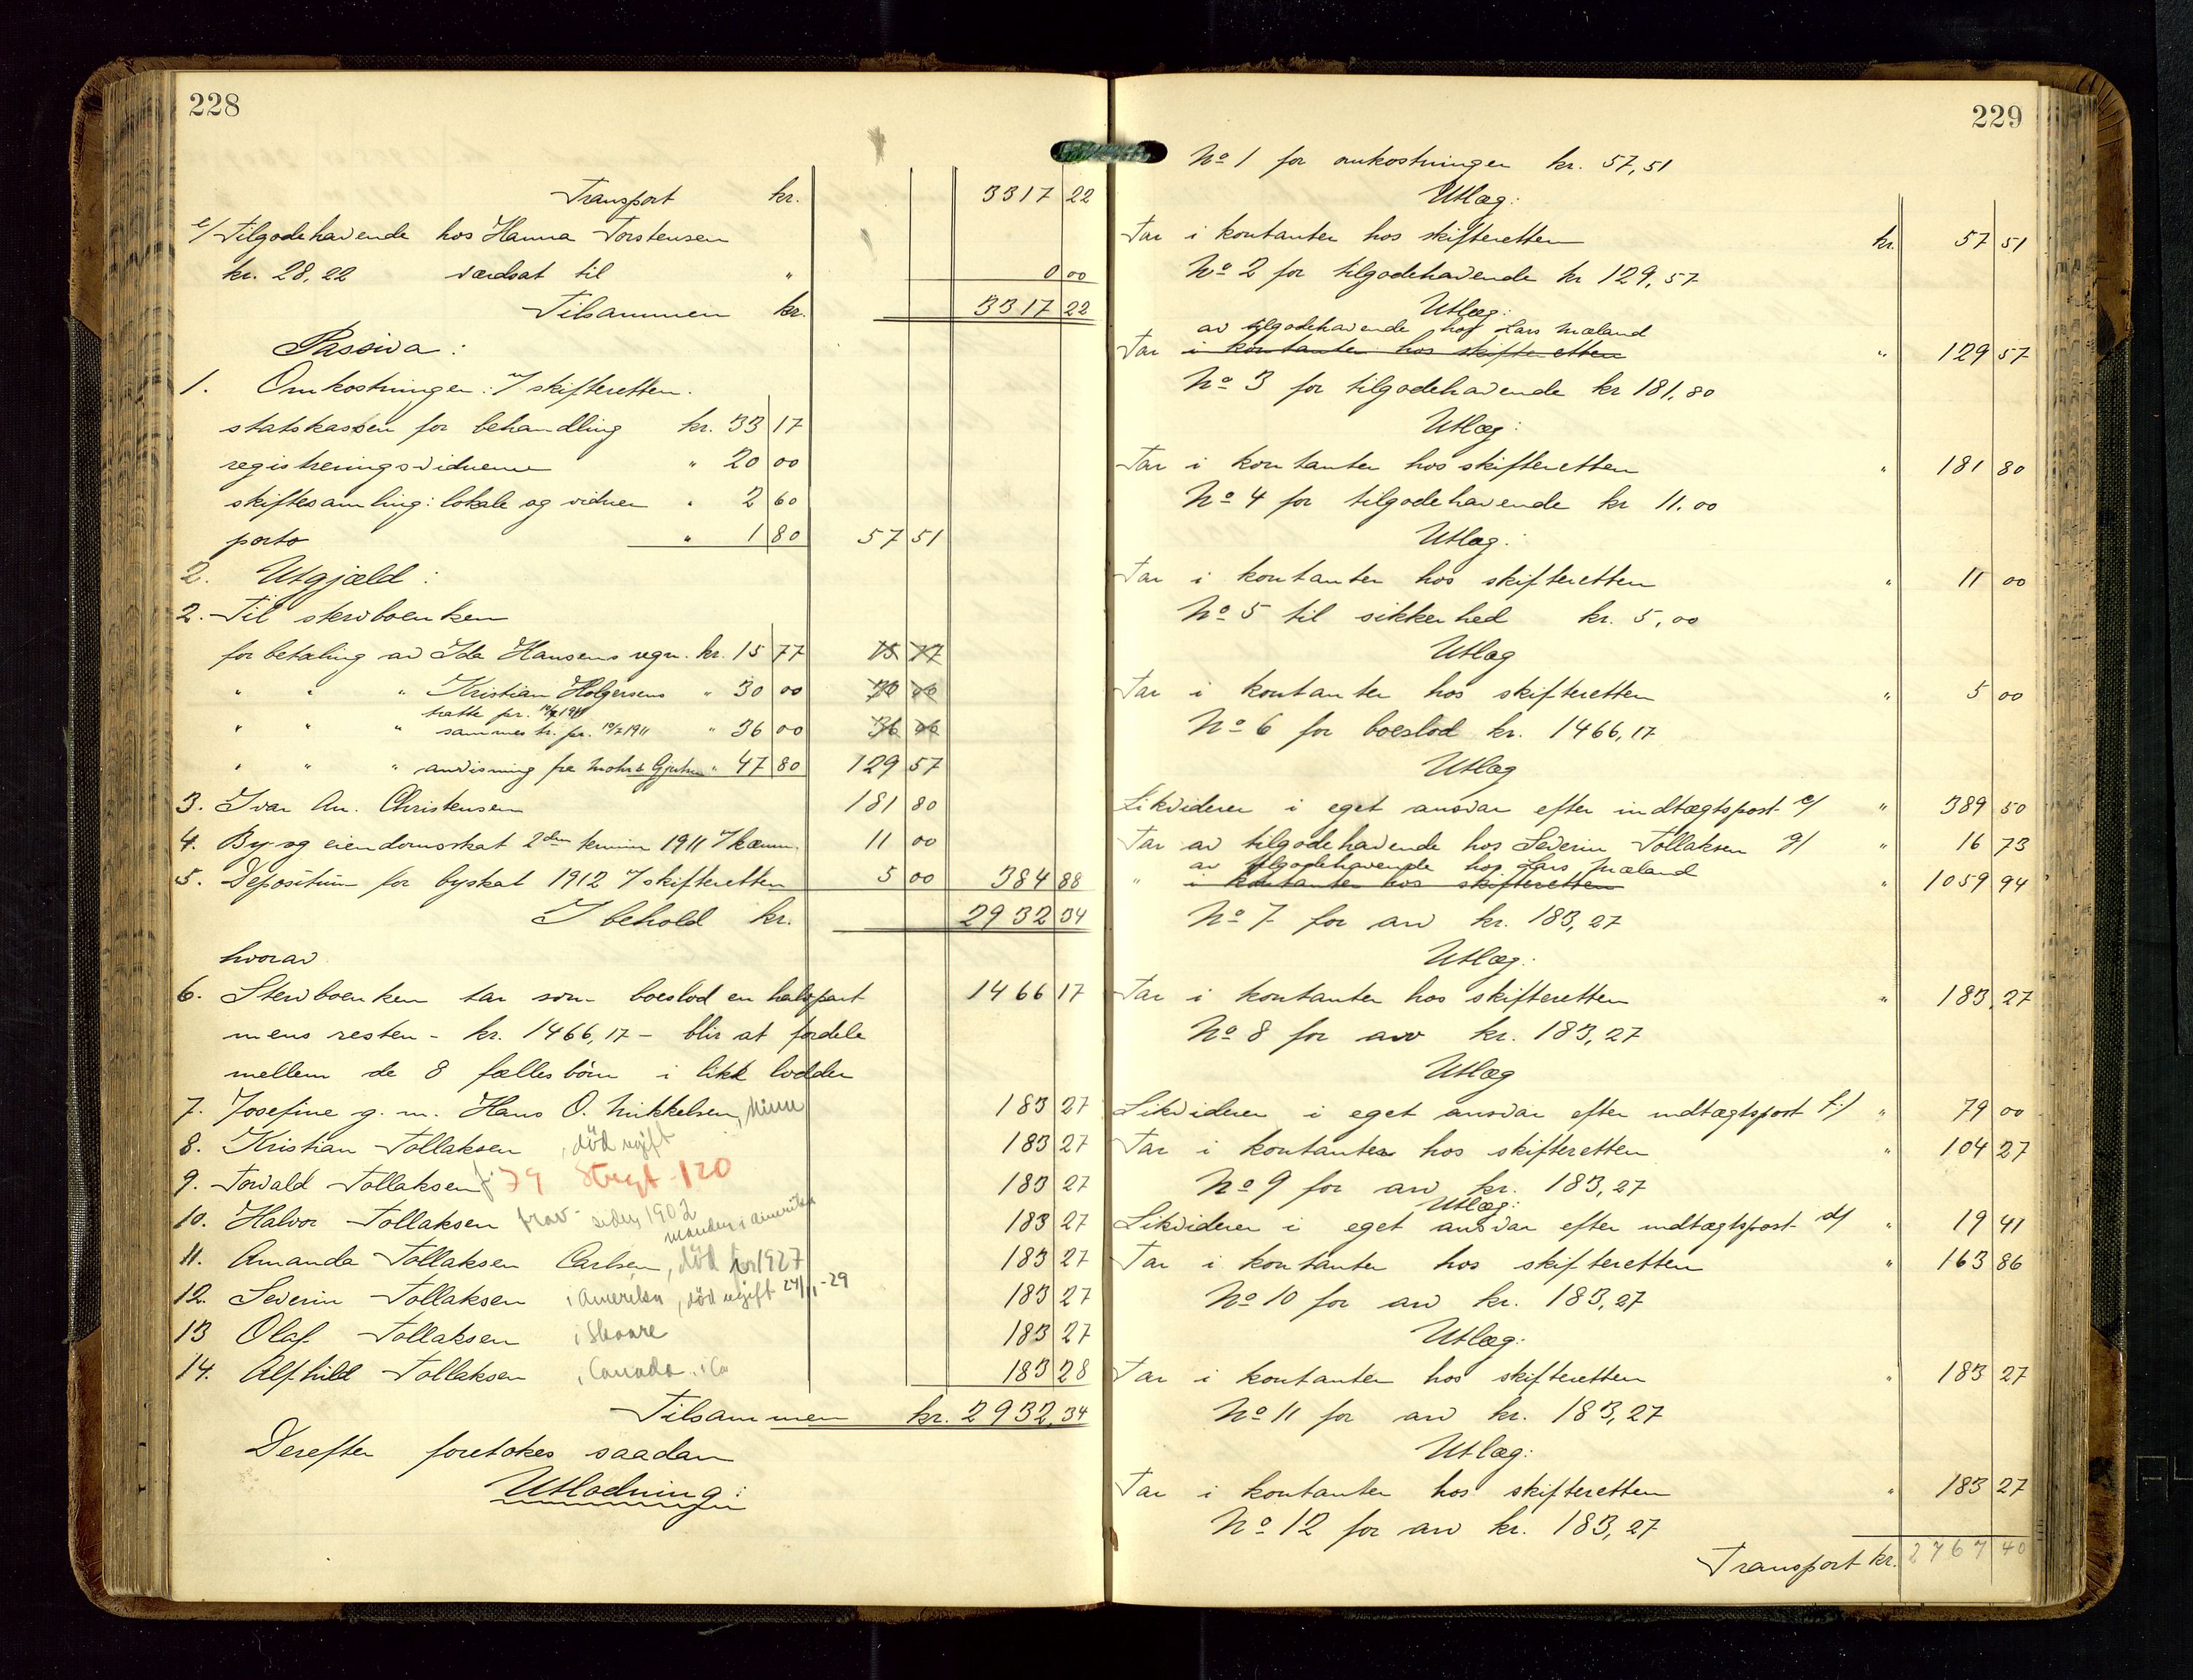 228
Transport kr. 3317 22
e/ Tilgodehavende hos Hanna Torstensen
kr. 28,22 værdsat til " 0 00
Tilsammen kr. 3317 22
Passiva:
1. Omkostninger: I skifteretten.
statskassen for behandling kr. 33 17
registreringsvidnerne " 20 00
skiftesamling: lokale og vidner " 2 60
porto " 1 80 57 51
2. Utgjæld:
2. Til skevboenken
for betaling av Ida Hansens regn. kr. 15 77 15 77
" " " Kristian Holgersens " 30 00 30 00
tratte pr.
" " " sammes tr. pr. " 36 00 36 00
" " " anvisning fra " 47 80 129 57
3. Ivar An. Christensen 181 80
4. By- og eiendomsskat 2den termin 1911 11 00
5. Depositum for byskat 1912 I skifteretten 5 00 384 88
I behold kr. 2932 34
hvorav
6. Stervboenken tar som boeslod en halvpart 1466 17
mens resten - kr. 1466,17 - blir at fordele
mellem de 8 fællesbørn i like lodder
7. Josefine g. m. Hans O. Mikkelsen, 183 27
8. Kristian Tollaksen, död ugift 183 27
9. Torvald Tollaksen f. 79 Strgt - 120 183 27
10. Halvor Tollaksen siden 1902 i Amerika 183 27
11. Amanda Tollaksen Carlsen, död 1927 183 27
12. Severin Tollaksen i Amerika, död ugift 24/11-29 183 27
13 Olaf Tollaksen i Skaare 183 27
14. Alfhild Tollaksen i Canada 183 28
Tilsammen kr. 2932,34
Derefter foretokes saadan
Utlodning:
229
No 1 for omkostninger kr. 57,51
Utlæg:
Tar i kontanter hos skifteretten kr. 57 51
No 2 for tilgodehavende kr 129,57
Utlæg:
av tilgodehavende hos Lars Mæland
Tar i kontanter hos skifteretten " 129 57
No 3 for tilgodehavende kr 181,80
Utlæg:
Tar i kontanter hos skifteretten " 181 80
No 4 for tilgodehavende kr 11.00
Utlæg:
Tar i kontanter hos skifteretten " 11 00
No 5 til sikkerhed kr. 5,00
Utlæg
Tar i kontanter hos skifteretten " 5 00
No 6 for boeslod kr. 1466,17
Utlæg
Likviderer i eget ansvar efter indtægtspost e/ " 389 50
Tar av tilgodehavende hos Severin Tollaksen g/ " 16 73
av tilgodehavende hos Lars Mæland
" i kontanter hos skifteretten " 1059 94
No 7 for arv kr. 183,27
Utlæg:
Tar i kontanter hos skifteretten " 183,27
No 8 for arv kr. 183,27
Utlæg
Likviderer i eget ansvar efter indtægtspost f/ " 79 00
Tar i kontanter hos skifteretten " 104 27
No 9 for arv kr. 183,27
Utlæg:
Likviderer i eget ansvar efter indtægtspost d/ " 19 41
Tar i kontanter hos skifteretten " 163 86
No 10 for arv kr. 183,27
Utlæg:
Tar i kontanter hos skifteretten " 183 27
No 11 for arv kr. 183,27
Utlæg:
Tar i kontanter hos skifteretten " 183 27
No 12 for arv kr. 183,27
Transport kr. 2767 40